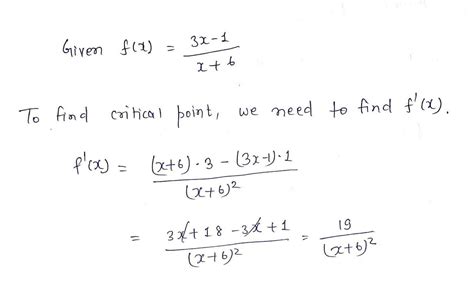 Given f(x) = (3x-1)/(x+6)
To find critical point, we need to find f'(x).
f'(x) = ((x+6)·3 - (3x-1)·1)/(x+6)²
= (3x+18-3x+1)/(x+6)² = 19/(x+6)²